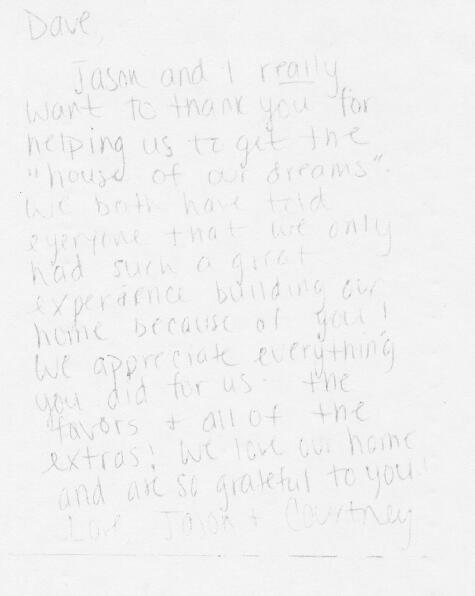 Dave,
Jason and I really
want to thank you for
helping us to get the
"house of our dreams".
We both have told
everyone that we only
had such a great
experience building our
home because of you!
We appreciate everything
you did for us - the
favors + all of the
extras! We love our home
and are so grateful to you!
Love, Jason + Courtney